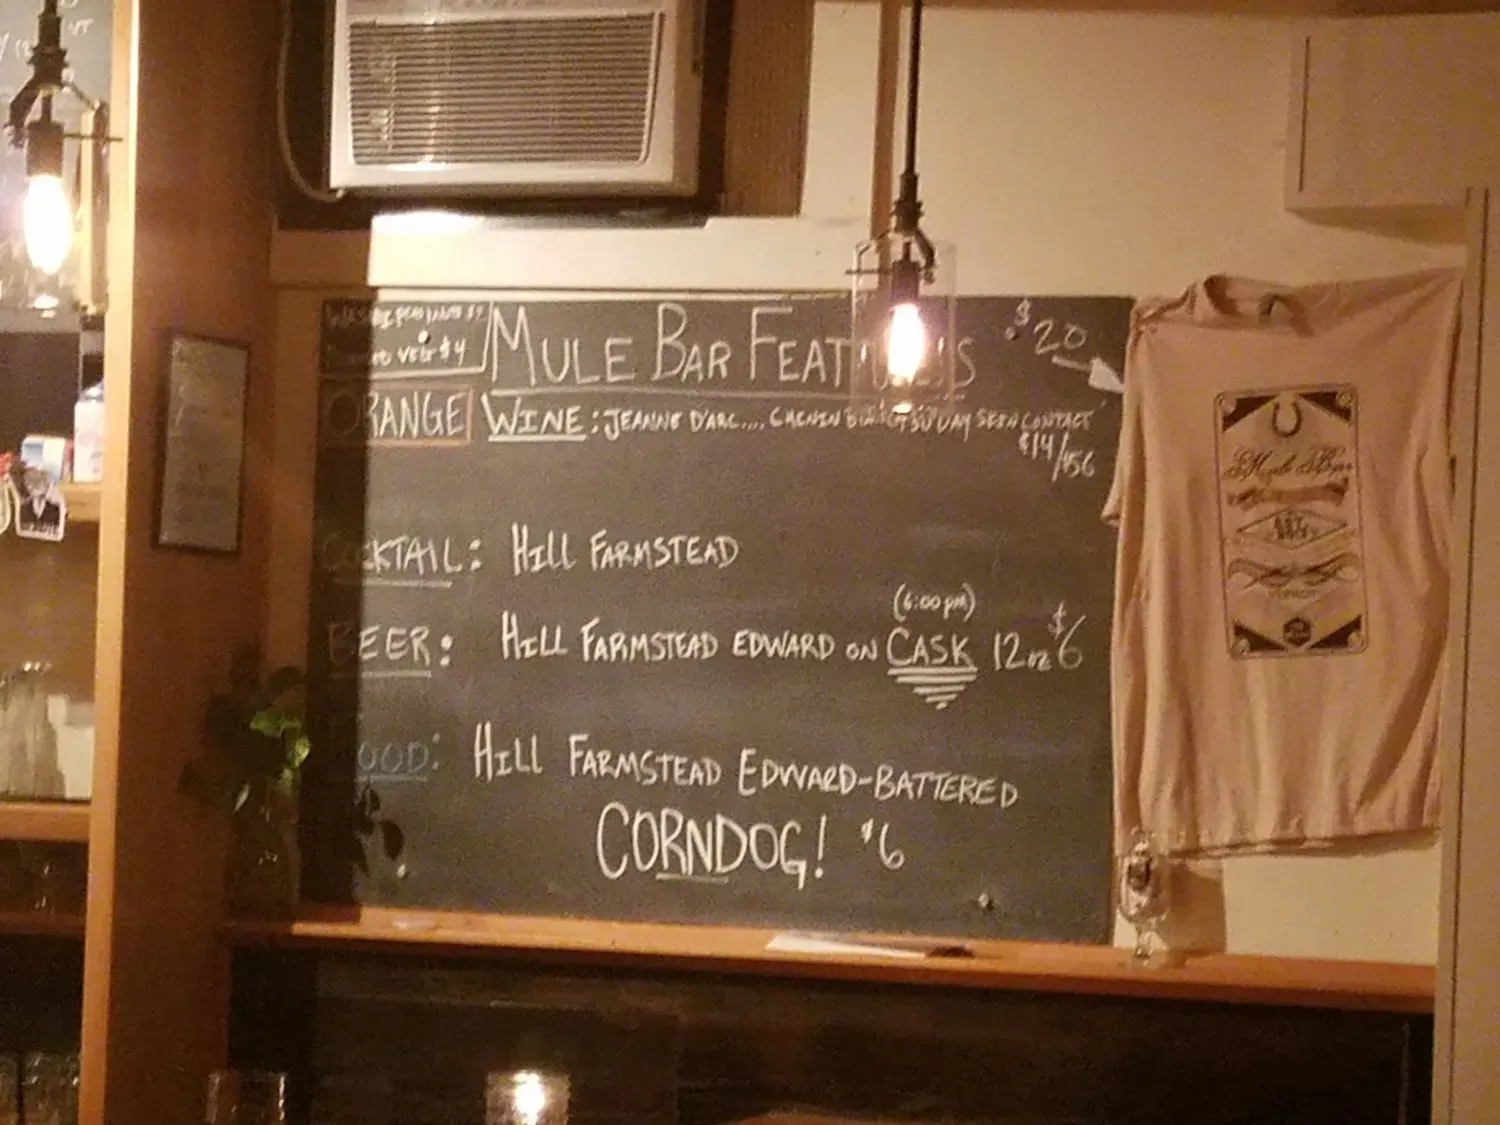 MULE BAR FEATURES
$20
ORANGE WINE: JEANNE D'ARC.... CHENIN SKIN CONTACT
$14/$56
COCKTAIL: HILL FARMSTEAD
(6:00pm)
BEER: HILL FARMSTEAD EDWARD ON CASK 12oz $6
FOOD: HILL FARMSTEAD EDWARD-BATTERED
CORNDOG! $6
Mule Bar